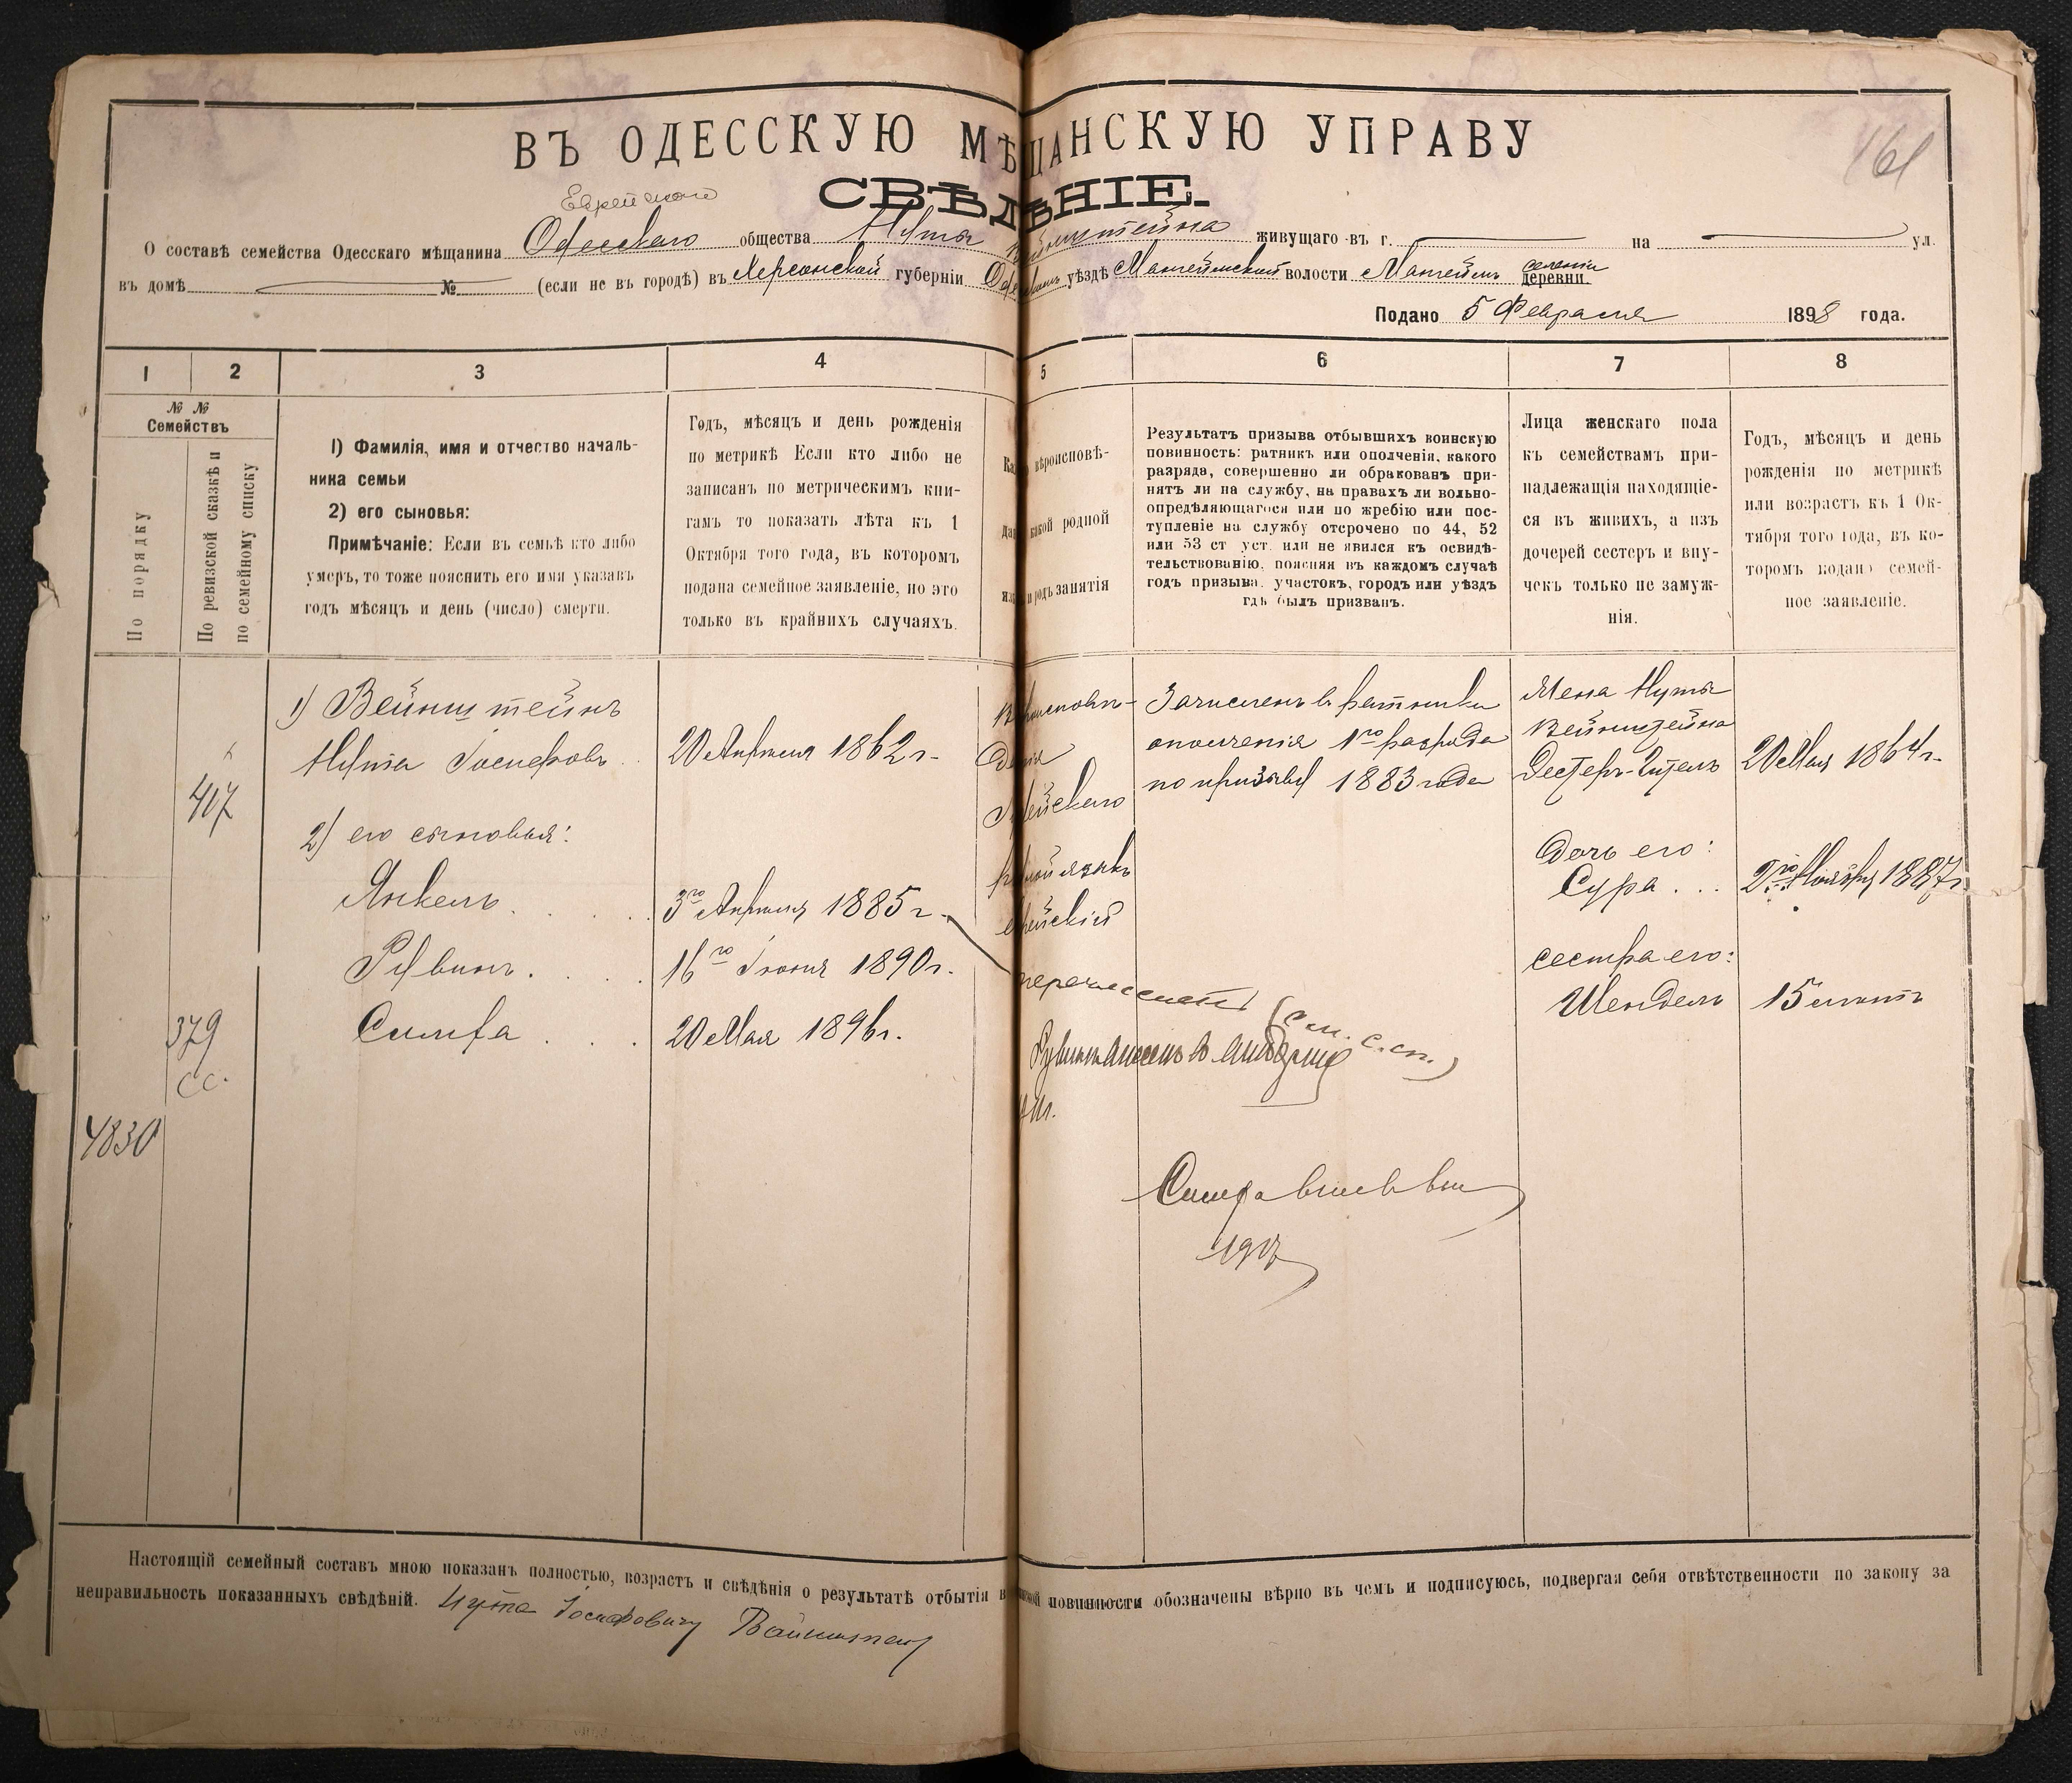 161
ВЪ ОДЕССКУЮ МѢЩАНСКУЮ УПРАВУ
СВѢДѢНІЕ.
Еврейскаго
О составѣ семейства Одесскаго мѣщанина Одесскаго общества Нута Вейнштейна живущаго въ г. на ул.
въ домѣ № (если не въ городѣ) въ Херсонской губерніи Одесскомъ уѣздѣ Мангеймской волости Мангеймъ селеніи деревни.
Подано 5 Февраля 1898 года.
1 2 3 4 5 6 7 8
№ № Семействъ
По порядку
По ревизской сказкѣ и
по семейному списку
1) Фамилія, имя и отчество началь-
ника семьи
2) его сыновья:
Примѣчаніе: Если въ семьѣ кто либо
умеръ, то тоже пояснить его имя указавъ
годъ мѣсяцъ и день (число) смерти.
Годъ, мѣсяцъ и день рожденія
по метрикѣ Если кто либо не
записанъ по метрическимъ кни-
гамъ то показать лѣта къ 1
Октября того года, въ которомъ
подана семейное заявленіе, но это
только въ крайнихъ случаяхъ.
вѣроисповѣ-
родной
занятія
Результатъ призыва отбывшихъ воинскую
повинность: ратникъ или ополченія, какого
разряда, совершенно ли обракованъ при-
нятъ ли на службу, на правахъ ли вольно-
опредѣляющагося или по жребію или пос-
тупленіе на службу отсрочено по 44, 52
или 53 ст уст. или не явился къ освидѣ-
тельствованію, поясняя въ каждомъ случаѣ
годъ призыва, участокъ, городъ или уѣздъ
гдѣ былъ призванъ.
Лица женскаго пола
къ семействамъ при-
надлежащія находящіе-
ся въ живихъ, а изъ
дочерей сестеръ и вну-
чекъ только не замуж-
нія.
Годъ, мѣсяцъ и день
рожденія по метрикѣ
или возрастъ къ 1 Ок-
тября того года, въ ко-
торомъ подано семей-
ное заявленіе.
1) Вейнштейнъ
Нута Іосифовъ
20 Апреля 1862 г.
407
2) его сыновья:
Янкель
3го Апреля 1885 г.
Рувинъ
16го Іюня 1890 г.
Симха
20 Мая 1896 г.
379
СС.
4830
родной языкъ
еврейскій
Зачисленъ въ ратники
ополченія 1го разряда
по призыву 1883 года
перечисленъ (см. с. сп.)
1917
Жена Нуты
Вейнштейна
Эстеръ-Гитель
20 Мая 1864 г.
Дочь его:
Сура
2го Ноября 1887 г.
сестра его:
Шендель
15 лѣтъ
Настоящій семейный составъ мною показанъ полностью, возрастъ и свѣдѣнія о результатѣ отбытія воинской повинности обозначены вѣрно въ чемъ и подписуюсь, подвергая себя отвѣтственности по закону за
неправильность показанныхъ свѣдѣній. Нута Іосифовичъ Вайнштейнъ